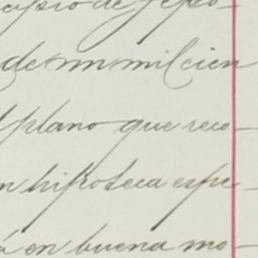 cipio de
de mil cien
plano que reco-
n hipoteca espe-
á en buena mo-